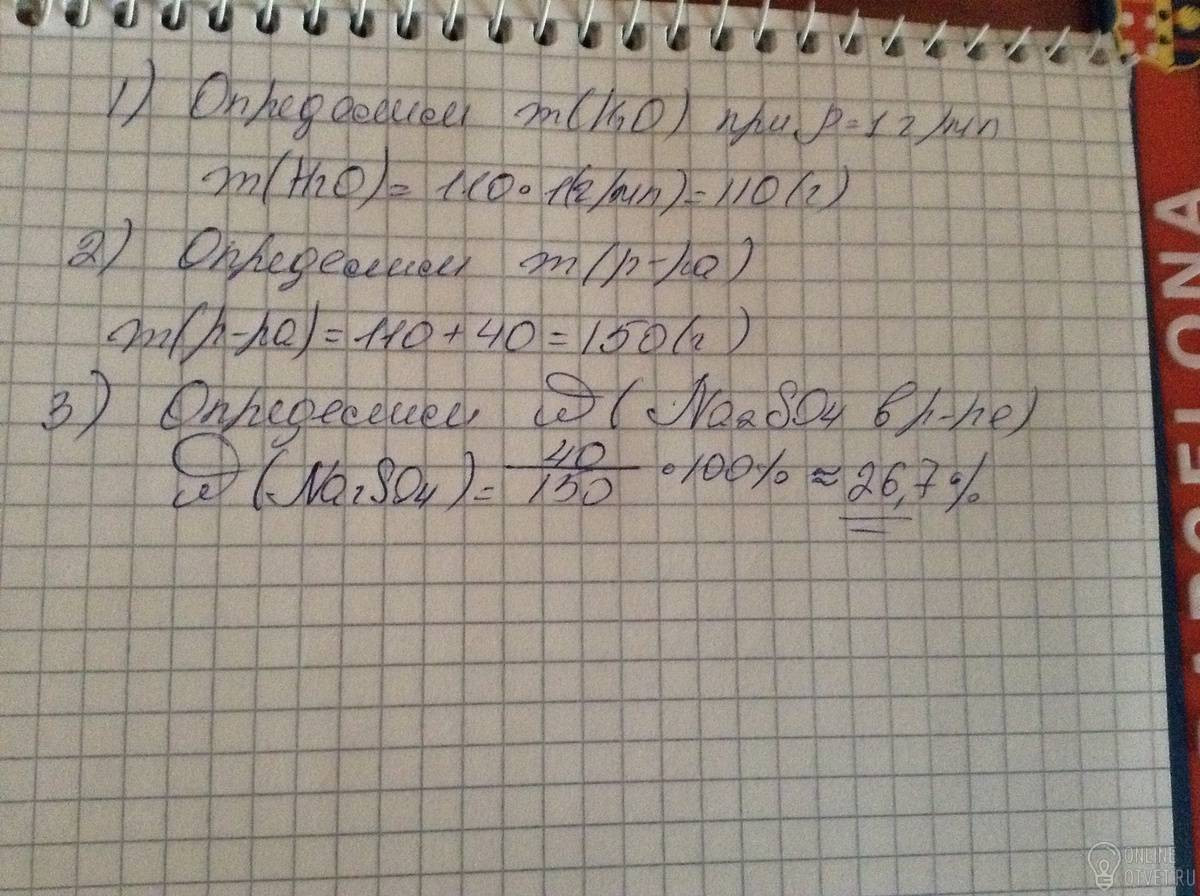 1) Определим m(H2O) при ρ=1 г/мл
m(H2O)= 110∘1(г/мл)=110(г)
2) Определим m(р-ра)
m(р-ра)=110+40=150(г)
3) Определим ω(Na2SO4 в р-ре)
ω(Na2SO4)= 40/150 ∘100% ≈ 26,7%
ELONA
ONLINE
OTVET.RU